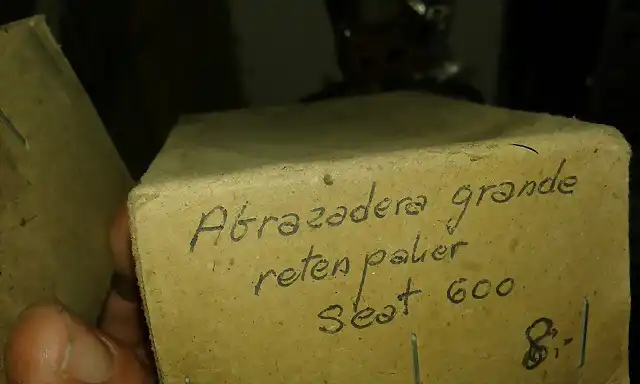 Abrazadera grande
reten palier
seat 600
8,-